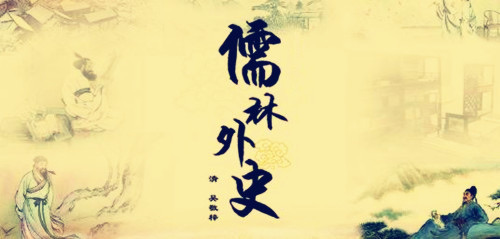 儒林外史
清 吴敬梓